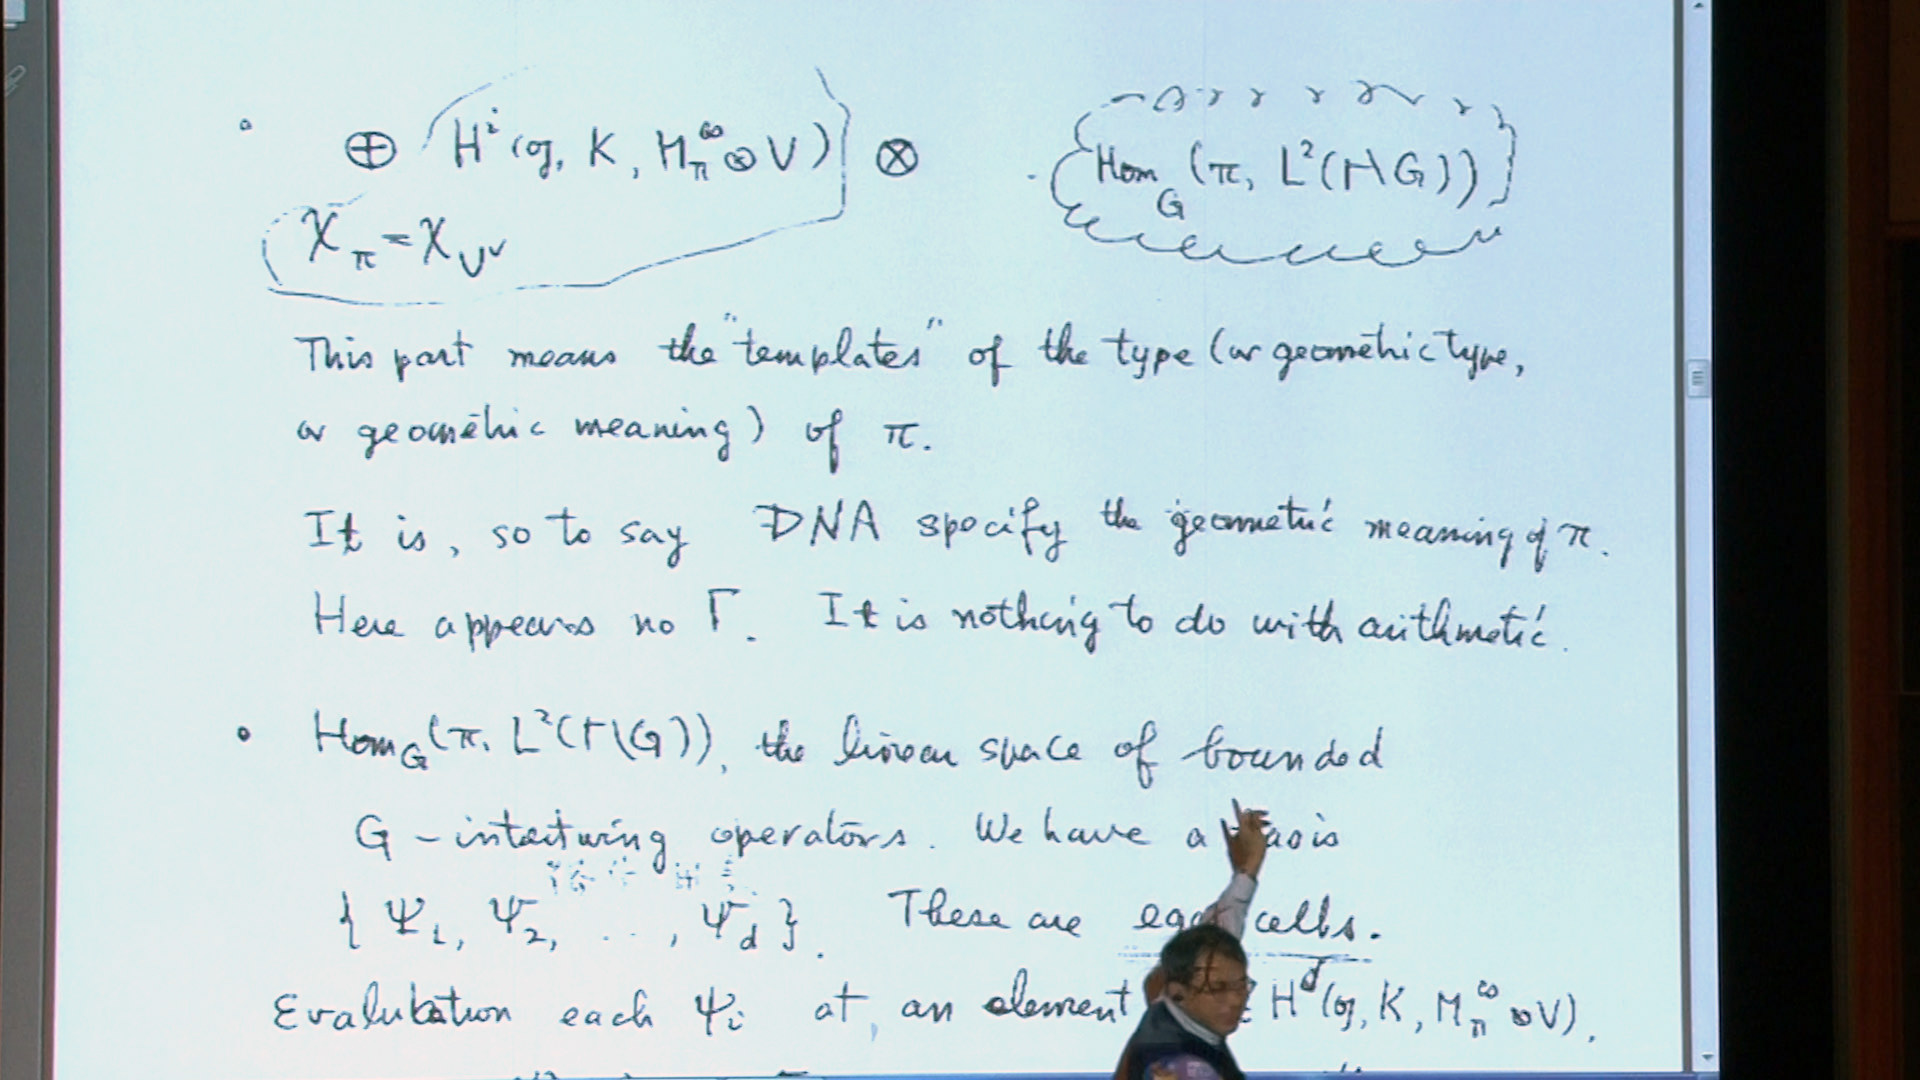 ⊕ Hⁱ(𝔤, K, M_π^∞ ⊗ V) ⊗ Hom_G(π, L²(Γ\G))
χ_π = χ_V∨
This part means the "templates" of the type (or geometric type,
or geometric meaning) of π.
It is, so to say DNA specify the geometric meaning of π.
Here appears no Γ. It is nothing to do with arithmetic.
• Hom_G(π, L²(Γ\G)), the linear space of bounded
G-intertwing operators. We have a basis
{ Ψ₁, Ψ₂, ..., Ψ_d }. These are egg cells.
Evalubation each Ψ_i at, an element ∈ H^d(𝔤, K, M_π^∞ ⊗ V),